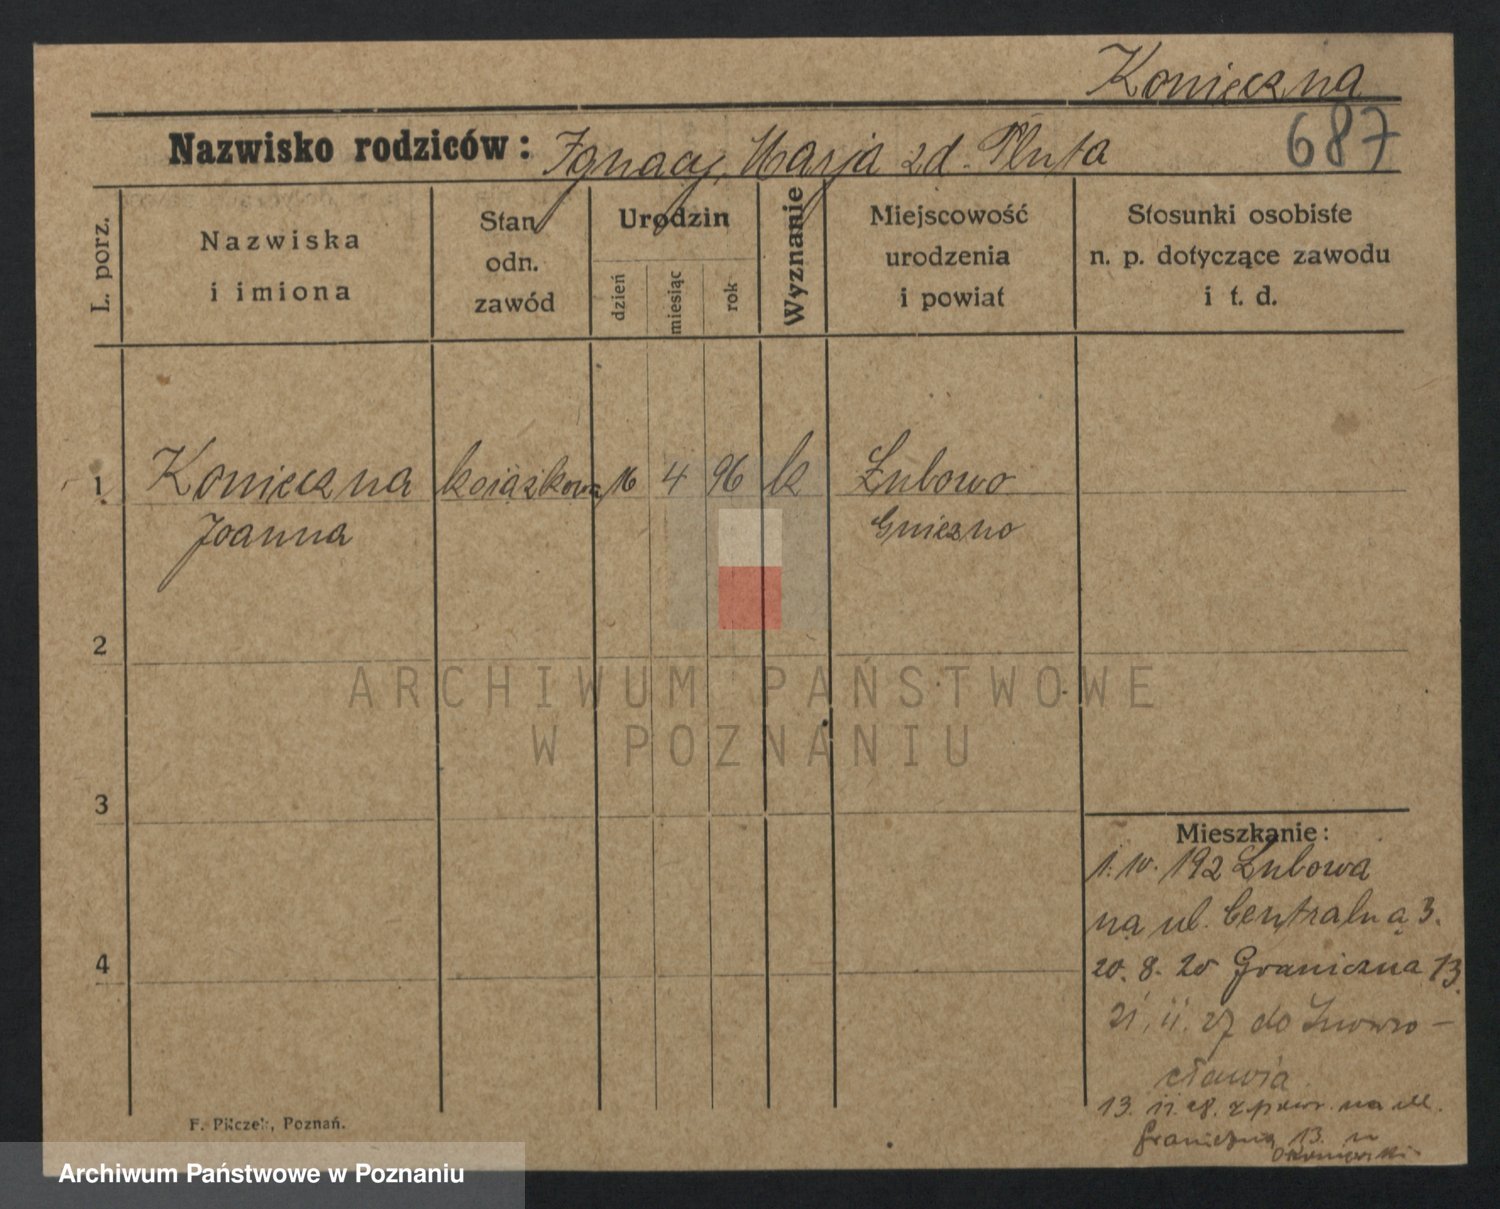 Konieczna
687
Nazwisko rodziców: Ignacy, Marja zd. Pluta
L. porz.
Nazwiska
i imiona
Stan
odn.
zawód
Urodzin
dzień
miesiąc
rok
Wyznanie
Miejscowość
urodzenia
i powiat
Stosunki osobiste
n. p. dotyczące zawodu
i t. d.
1 Konieczna książkowa 16 4 96 k Łubowo
Joanna Gniezno
2
ARCHIWUM PAŃSTWOWE
W POZNANIU
3
4
Mieszkanie:
1. IV. 192 Łubowa
na ul. Centralną 3.
20. 8. 25 Graniczna 13.
21. 11. 27 do Inowro-
cławia
13. 11. 28. z pow. na ul.
Graniczną 13. u
F. Pilczek, Poznań.
Archiwum Państwowe w Poznaniu